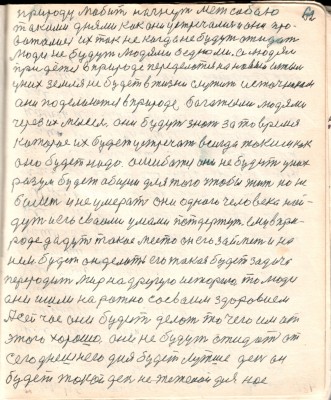 природу любит начнут меж собою
такими днями как они встречались и они про
их так не когда не будут ожидат
люди не будут людями бедноми. Сиюдням
придется в природе переделот на новый и там
у них земля не будет в жизни служит источником
ани поделются в природе богатыми людями
через их мысел, они будут знат за то время
которое их будет встречат всегда таким как
оно будет надо. ошибати они не будут у них
разум будет общий для того чтобы жит но не
болет и не умерат они одного человека най-
дут и его своими умами потдержут. ему в при-
роде дадут такое место он его займет и на
нем будет он делит его такая будет задача
переродит мир на другую историю то люди
ани ишли на ровно со своим здоровием
А сейчас они будут делат то чего им от
этого хорошо. они не будут стидат от
сегоднешнего дня будет лутше ден он
будет такой ден не тяжолой для нас